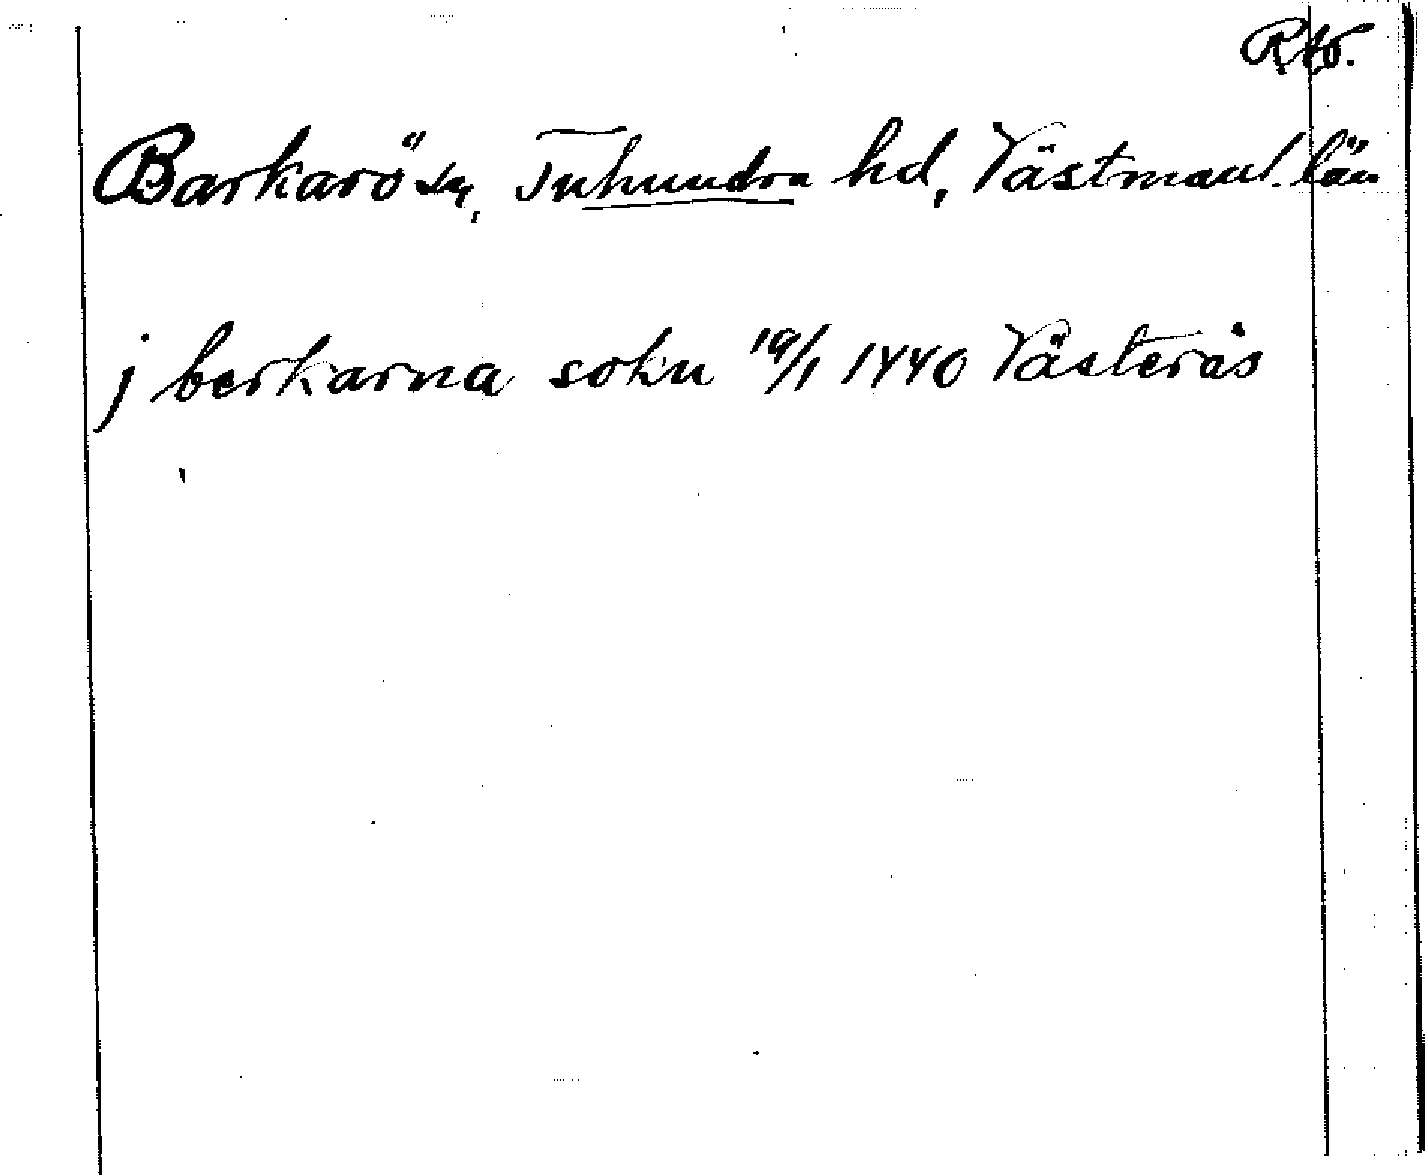 RAO.
Barkarö sn, Tuhundra hd, Västmanl. län
j berkarna sokn 19/1 1440 Västerås